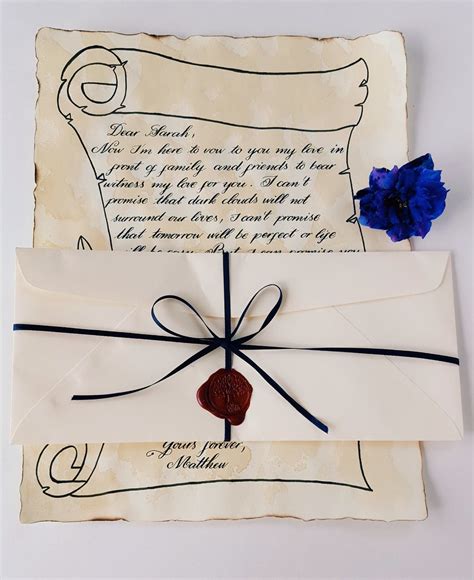 Dear Sarah,
Now I'm here to vow to you my love in
front of family and friends to bear
witness my love for you. I can't
promise that dark clouds will not
surround our lives, I can't promise
that tomorrow will be perfect or life
will be easy. But I can promise you
Yours forever,
Matthew